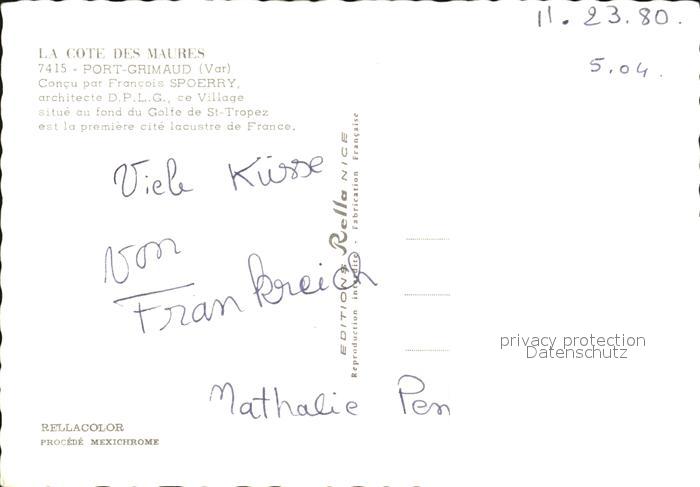 11. 23.80.
5.04.
LA COTE DES MAURES
7415 - PORT-GRIMAUD (Var)
Conçu par François SPOERRY,
architecte D.P.L.G., ce Village
situé au fond du Golfe de St-Tropez
est la première cité lacustre de France.
Viele Küsse
Von
Frankreich
Nathalie Pen
EDITIONS Rella NICE
Reproduction interdite - Fabrication Française
privacy protection
Datenschutz
RELLACOLOR
PROCÉDÉ MEXICHROME